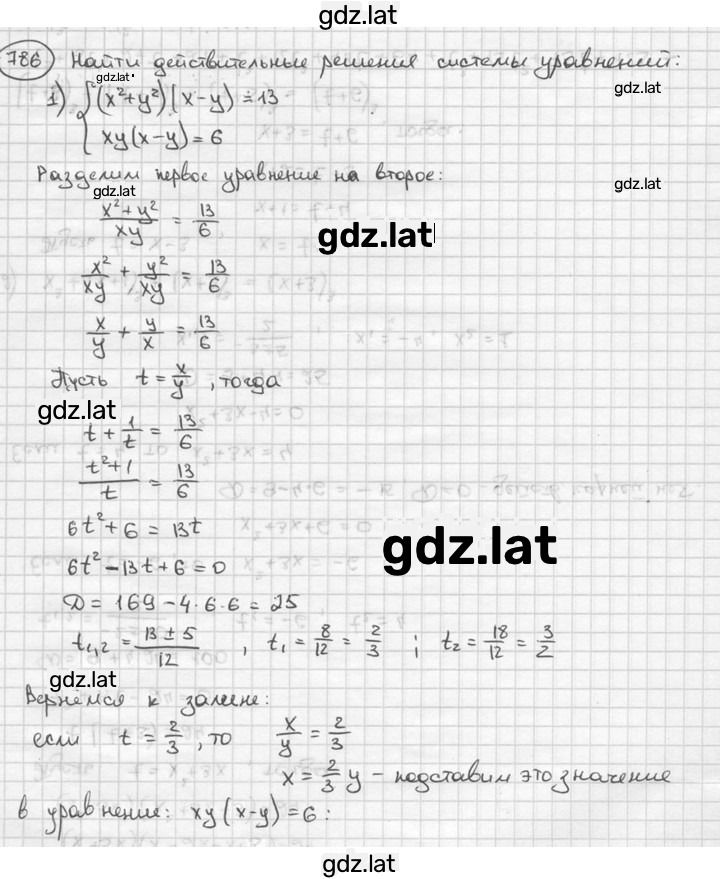 gdz.lat
786 Найти действительные решения системы уравнений:
gdz.lat
gdz.lat
1) { (x²+y²)(x-y) = 13
xy(x-y) = 6
Разделим первое уравнение на второе:
gdz.lat
gdz.lat
(x²+y²)/(xy) = 13/6
gdz.lat
x²/(xy) + y²/(xy) = 13/6
x/y + y/x = 13/6
Пусть t = x/y, тогда
gdz.lat
t + 1/t = 13/6
(t²+1)/t = 13/6
6t² + 6 = 13t
gdz.lat
6t² - 13t + 6 = 0
D = 169 - 4·6·6 = 25
t₁,₂ = (13 ± 5)/12, t₁ = 8/12 = 2/3; t₂ = 18/12 = 3/2
gdz.lat
Вернёмся к замене:
если t = 2/3, то x/y = 2/3
x = 2/3 y - подставим это значение
в уравнение: xy(x-y) = 6:
gdz.lat